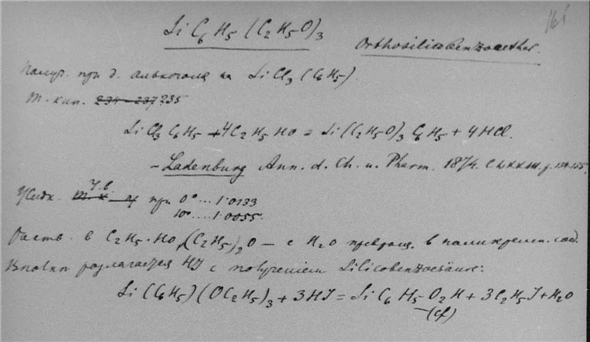 161
SiC6H5(C2H5O)3
Orthosilicobenzoæther.
Получ. при д. алькоголя на SiCl3(C6H5).
Т. кип. 234-237 235
SiCl3C6H5 + 4C2H5HO = Si(C2H5O)3C6H5 + 4HCl.
- Ladenburg Ann. d. Ch. u. Pharm. 1874.
Жидк. У.в. при 0°...1.0133
10°....1.0055.
Раств. в C2H5.HO, (C2H5)2O – с H2O превращ. в
разлагается HJ с получением Silicobenzoesäure:
Si(C6H5)(OC2H5)3 + 3HJ = SiC6H5O2H + 3C2H5J + H2O
(cf)